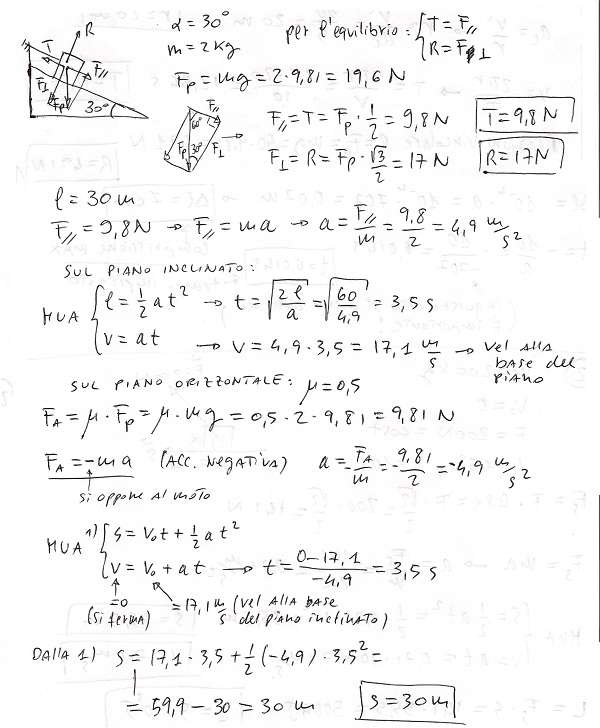 α = 30°
m = 2 Kg
per l'equilibrio: { T = F//
R = F⊥
R
T
F//
F⊥
Fp
30°
Fp = mg = 2·9,81 = 19,6 N
F//
60°
Fp
30°
F⊥
F// = T = Fp · 1/2 = 9,8 N
T = 9,8 N
F⊥ = R = Fp · √3/2 = 17 N
R = 17 N
l = 30 m
F// = 9,8 N → F// = ma → a = F///m = 9,8/2 = 4,9 m/s²
SUL PIANO INCLINATO:
MUA { l = 1/2 a t² → t = √(2l/a) = √(60/4,9) = 3,5 s
v = at → v = 4,9 · 3,5 = 17,1 m/s → vel alla base del piano
SUL PIANO ORIZZONTALE: μ = 0,5
FA = μ · Fp = μ · mg = 0,5 · 2 · 9,81 = 9,81 N
FA = -ma (ACC. NEGATIVA) a = -FA/m = -9,81/2 = -4,9 m/s²
si oppone al moto
MUA 1) { s = v₀t + 1/2 a t²
v = v₀ + at → t = 0-17,1/-4,9 = 3,5 s
=0
(si ferma)
= 17,1 m/s (vel alla base del piano inclinato)
DALLA 1) s = 17,1 · 3,5 + 1/2 (-4,9) · 3,5² =
= 59,9 - 30 = 30 m
s = 30 m